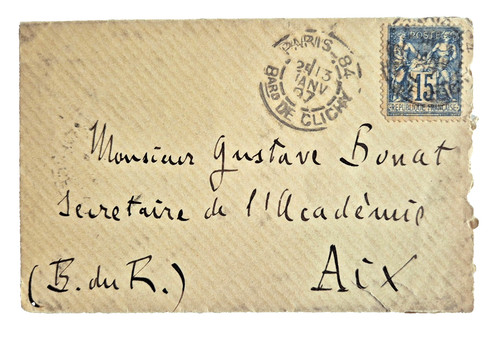 PARIS 84
JANV
97
Bard DE CLICHY
POSTES
15
REPUBLIQUE FRANÇAISE
Monsieur Gustave Bonat
Secretaire de l'Académie
(B. du R.) Aix